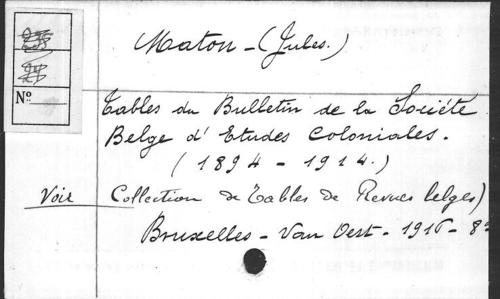 Maton - (Jules.)
Nº
Tables du Bulletin de la Société
Belge d'Etudes Coloniales.
(1894 - 1914.)
Voir Collection de Tables de Revues belges)
Bruxelles - Van Oest - 1916 - 8º